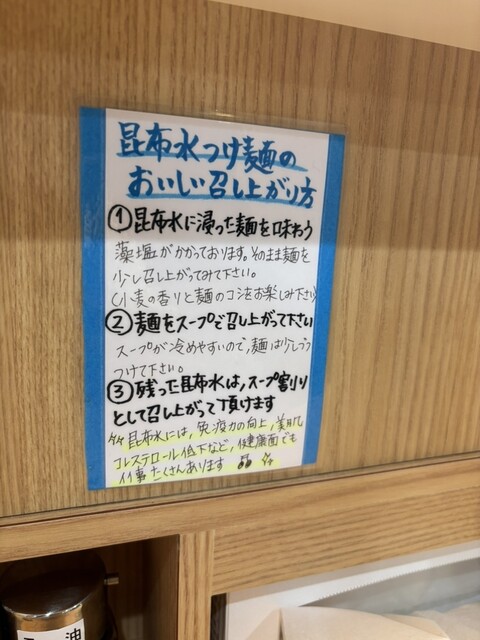 昆布水つけ麺の
おいしい召し上がり方
①昆布水に浸った麺を味わう
藻塩がかかっております。そのまま麺を
少し召し上がってみて下さい。
(小麦の香りと麺のコシをお楽しみ下さい)
②麺をスープで召し上がって下さい
スープが冷めやすいので、麺は少しづつ
つけて下さい。
③残った昆布水は、スープ割り
として召し上がって頂けます
昆布水には、免疫力の向上、美肌
コレステロール低下など、健康面でも
イイ事たくさんあります
油